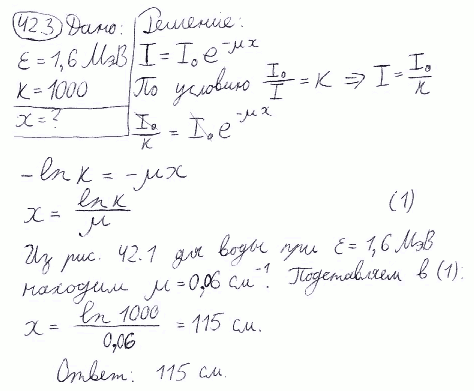 42.3 Дано: Решение:
ε = 1,6 МэВ I = I₀e^(-μx)
K = 1000 По условию I₀/I = K ⇒ I = I₀/K
x = ? I₀/K = I₀e^(-μx)
-ln K = -μx
x = ln K/μ (1)
Из рис. 42.1 для воды при ε = 1,6 МэВ
находим μ = 0,06 см⁻¹. Подставляем в (1):
x = ln 1000/0,06 = 115 см.
Ответ: 115 см.